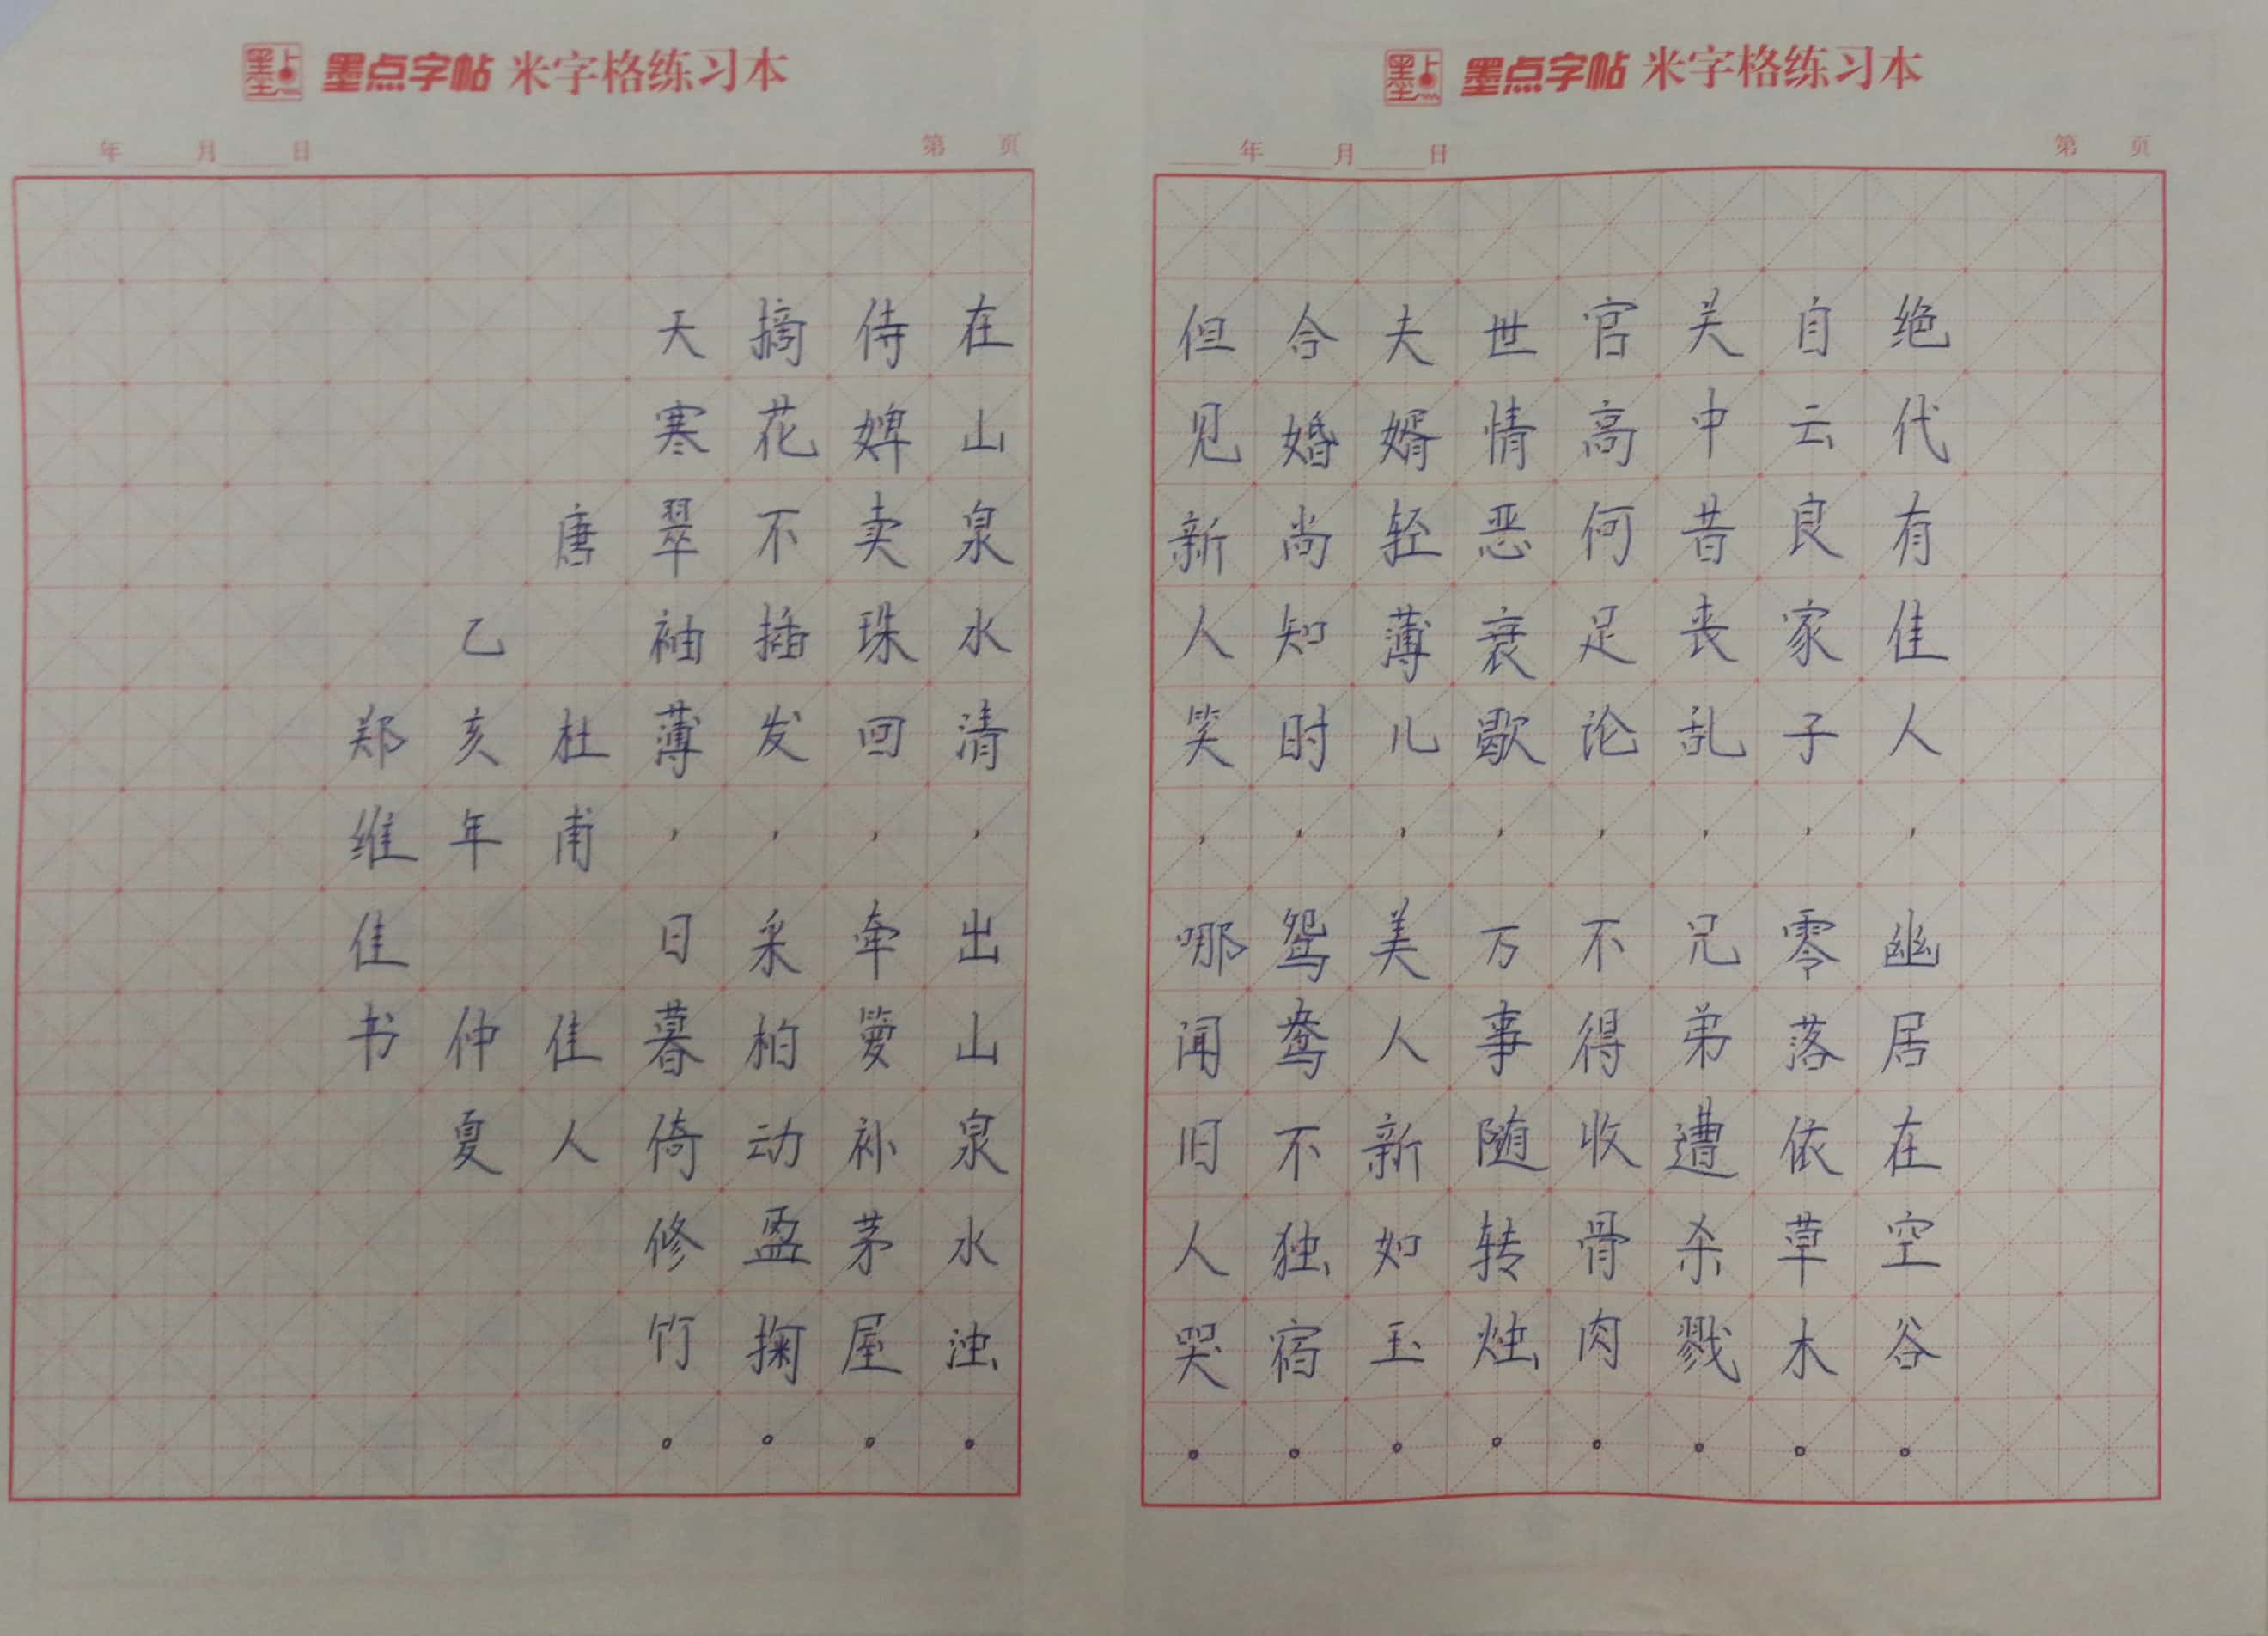 墨点 墨点字帖 米字格练习本
年 月 日 第 页
绝代有佳人，幽居在空谷。
自云良家子，零落依草木。
关中昔丧乱，兄弟遭杀戮。
官高何足论，不得收骨肉。
世情恶衰歇，万事随转烛。
夫婿轻薄儿，美人新如玉。
合婚尚知时，鸳鸯不独宿。
但见新人笑，哪闻旧人哭。
墨点 墨点字帖 米字格练习本
年 月 日 第 页
在山泉水清，出山泉水浊。
侍婢卖珠回，牵补茅屋。
摘花不插发，采柏动盈掬。
天寒翠袖薄，日暮倚修竹。
唐 杜甫 佳人
乙亥年 仲夏
郑维佳书